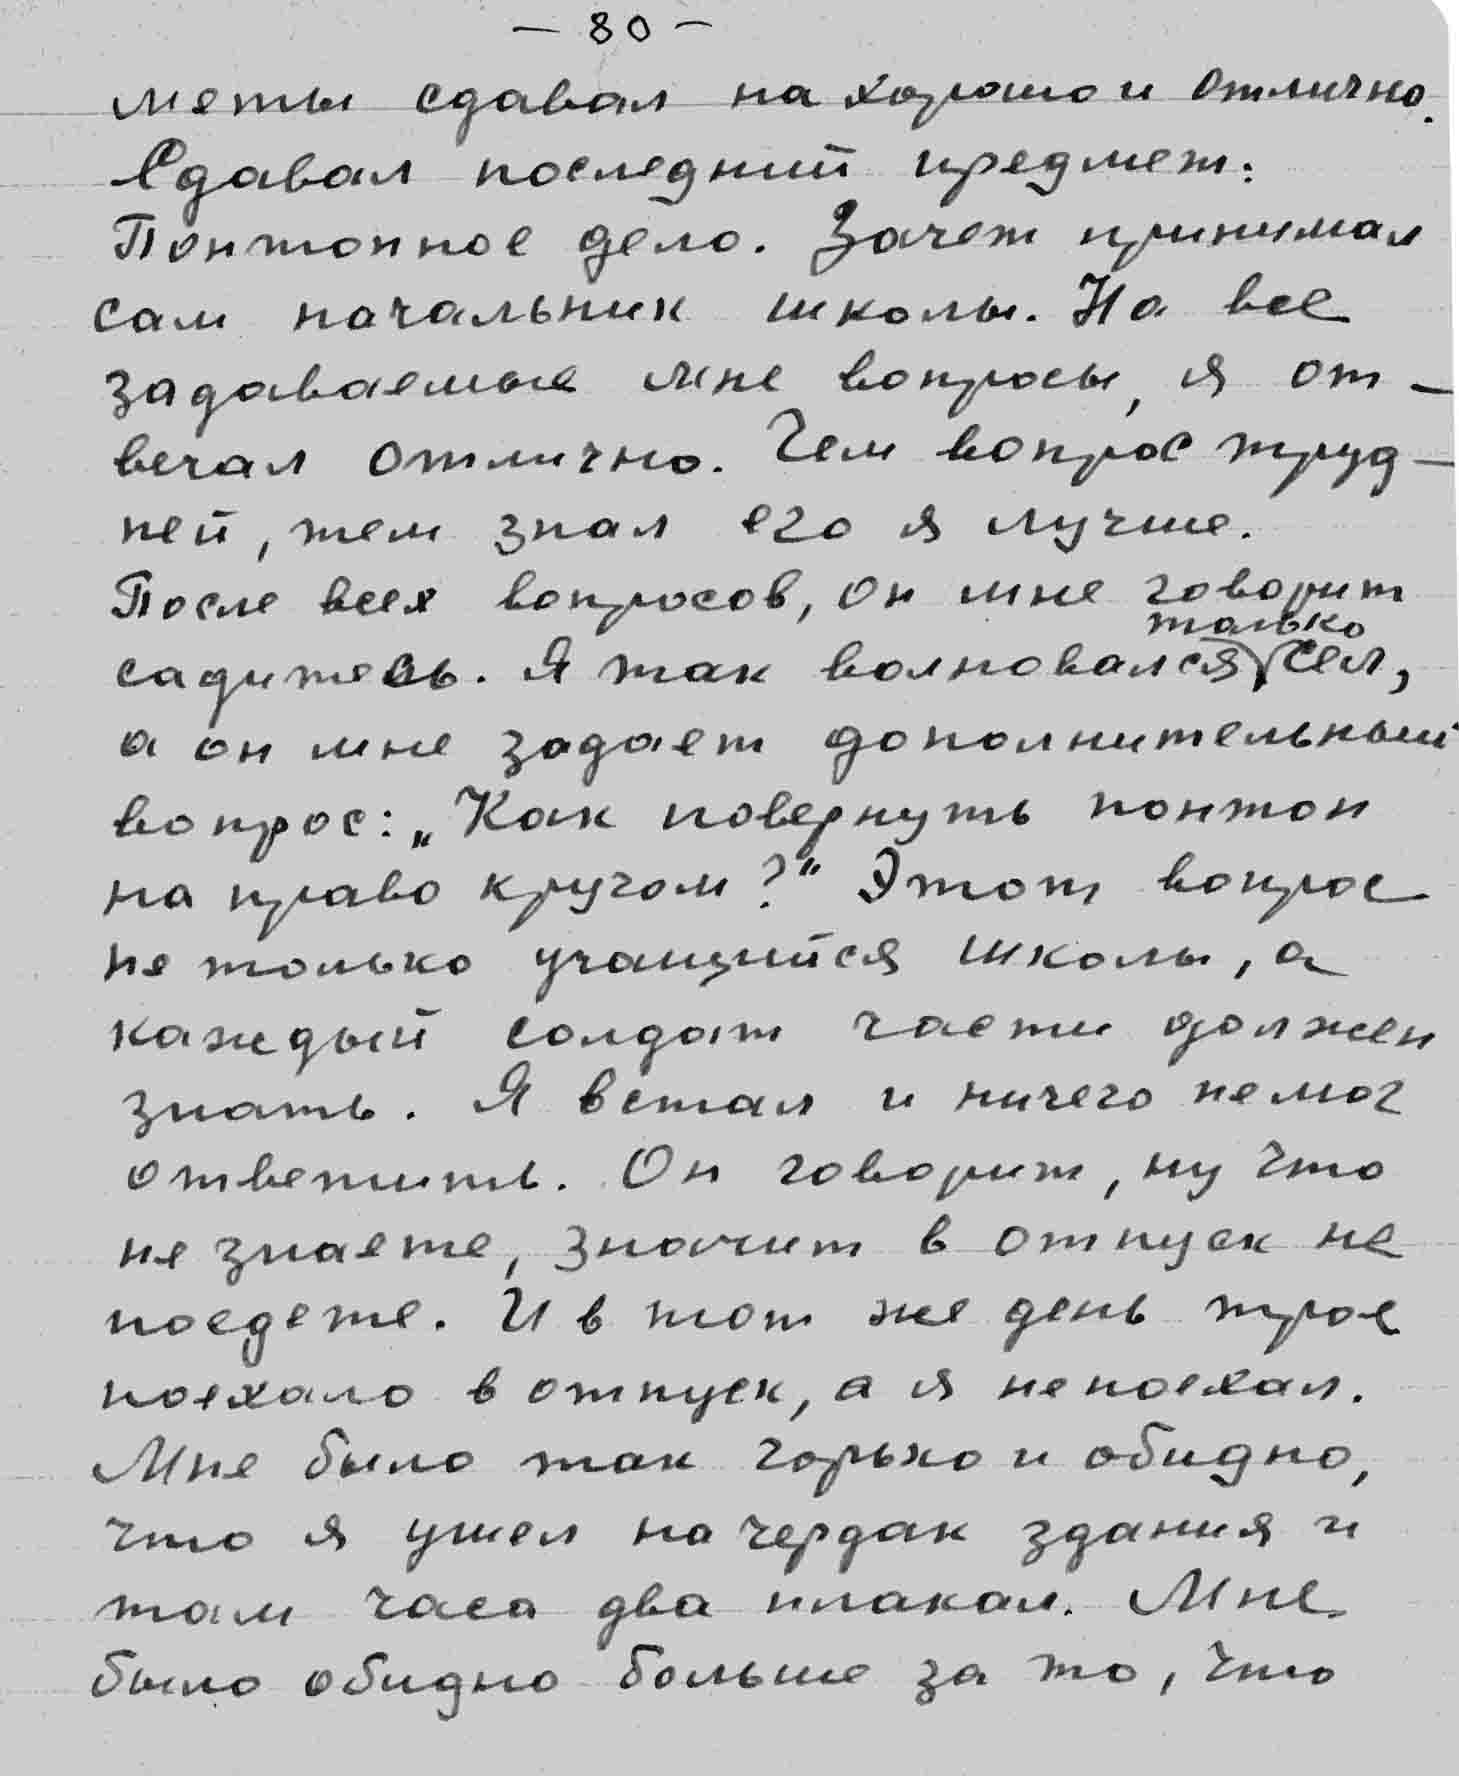 — 80 —
меты сдавал на хорошо и отлично.
Сдавал последний предмет:
Понтонное дело. Зачет принимал
сам начальник школы. На все
задаваемые мне вопросы, я от-
вечал отлично. Чем вопрос труд-
ней, тем знал его я лучше.
После всех вопросов, он мне говорит
только
садитесь. Я так волновался сел,
а он мне задает дополнительный
вопрос: „Как повернуть понтон
на право кругом?“ Этот вопрос
не только учащийся школы, а
каждый солдат части должен
знать. Я встал и ничего не мог
ответить. Он говорит, ну что
не знаете, значит в отпуск не
поедете. И в тот же день трое
поехало в отпуск, а я не поехал.
Мне было так горько и обидно,
что я ушел на чердак здания и
там часа два плакал. Мне
было обидно больше за то, что